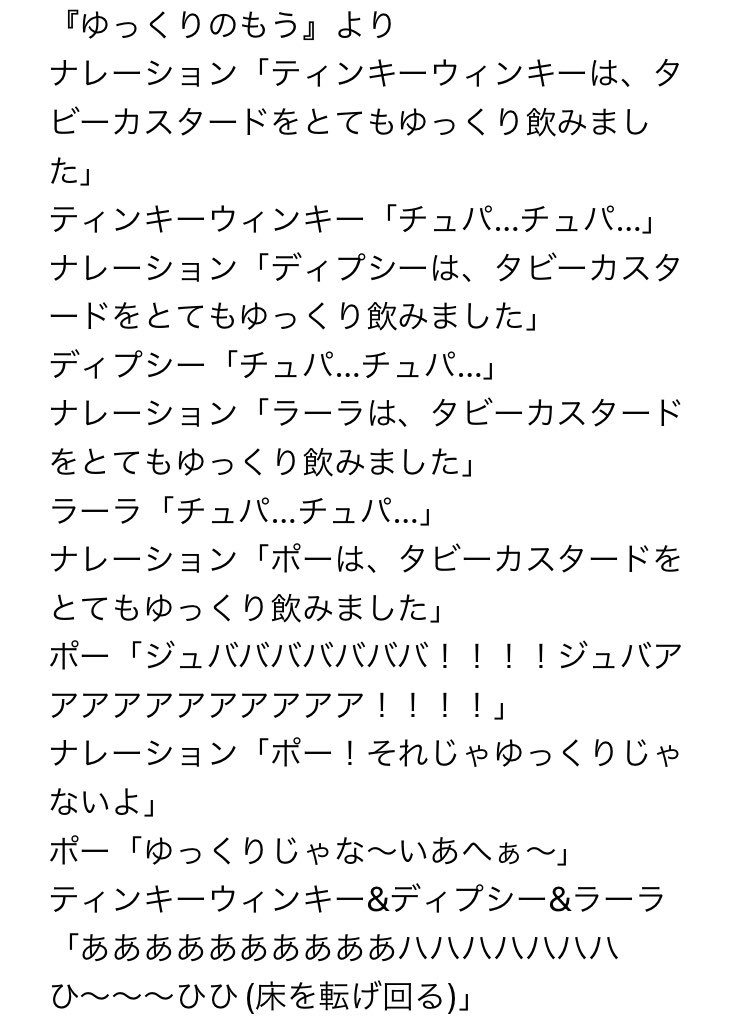 『ゆっくりのもう』より
ナレーション「ティンキーウィンキーは、タ
ビーカスタードをとてもゆっくり飲みまし
た」
ティンキーウィンキー「チュパ…チュパ…」
ナレーション「ディプシーは、タビーカスタ
ードをとてもゆっくり飲みました」
ディプシー「チュパ…チュパ…」
ナレーション「ラーラは、タビーカスタード
をとてもゆっくり飲みました」
ラーラ「チュパ…チュパ…」
ナレーション「ポーは、タビーカスタードを
とてもゆっくり飲みました」
ポー「ジュババババババババ！！！！ジュバア
アアアアアアアアアア！！！！」
ナレーション「ポー！それじゃゆっくりじゃ
ないよ」
ポー「ゆっくりじゃな〜いあへぁ〜」
ティンキーウィンキー&ディプシー&ラーラ
「ああああああああああハハハハハハハ
ひ〜〜〜ひひ (床を転げ回る)」